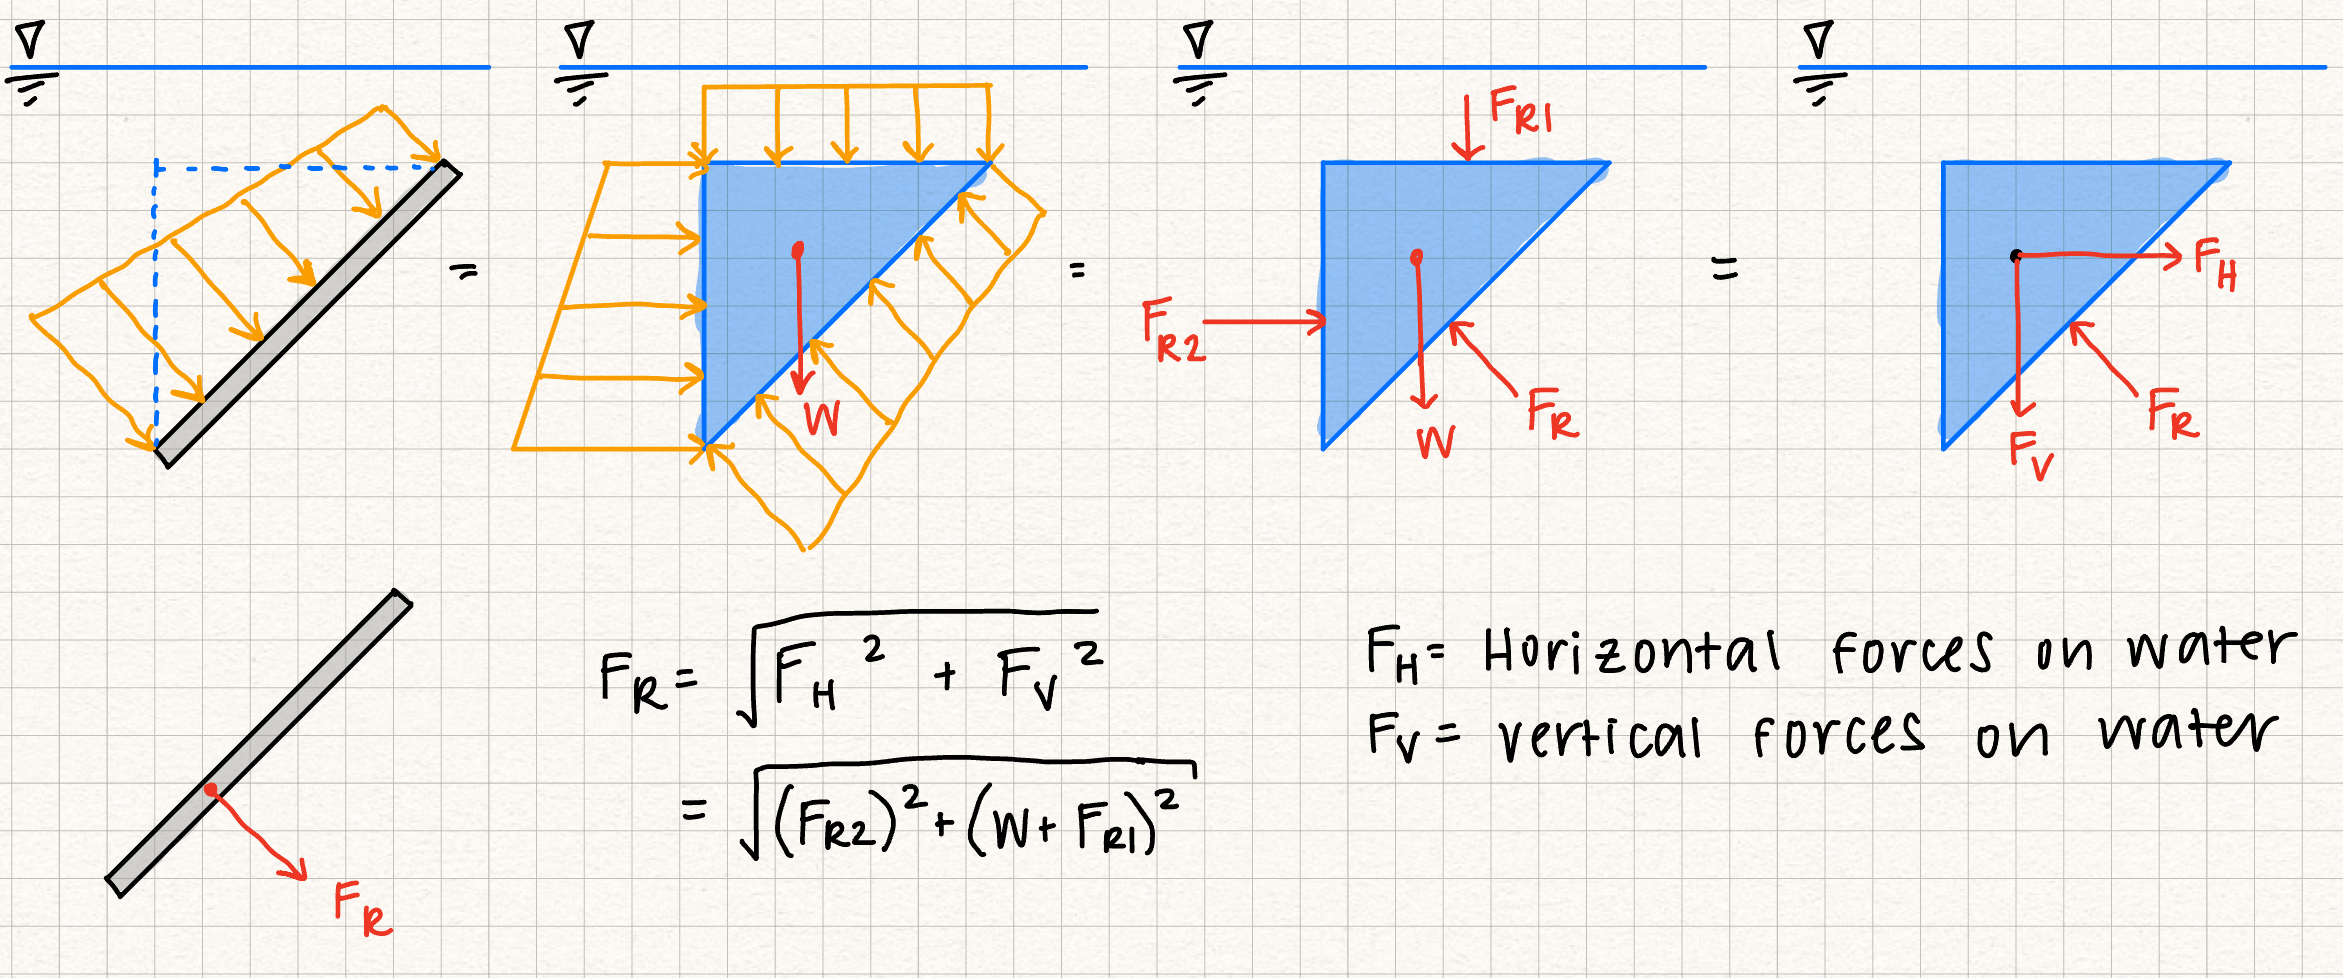 =
W
=
F_R1
F_R2
W
F_R
=
F_H
F_V
F_R
F_R
F_R = √(F_H² + F_V²)
= √((F_R2)² + (W + F_R1)²)
F_H = Horizontal forces on water
F_V = vertical forces on water